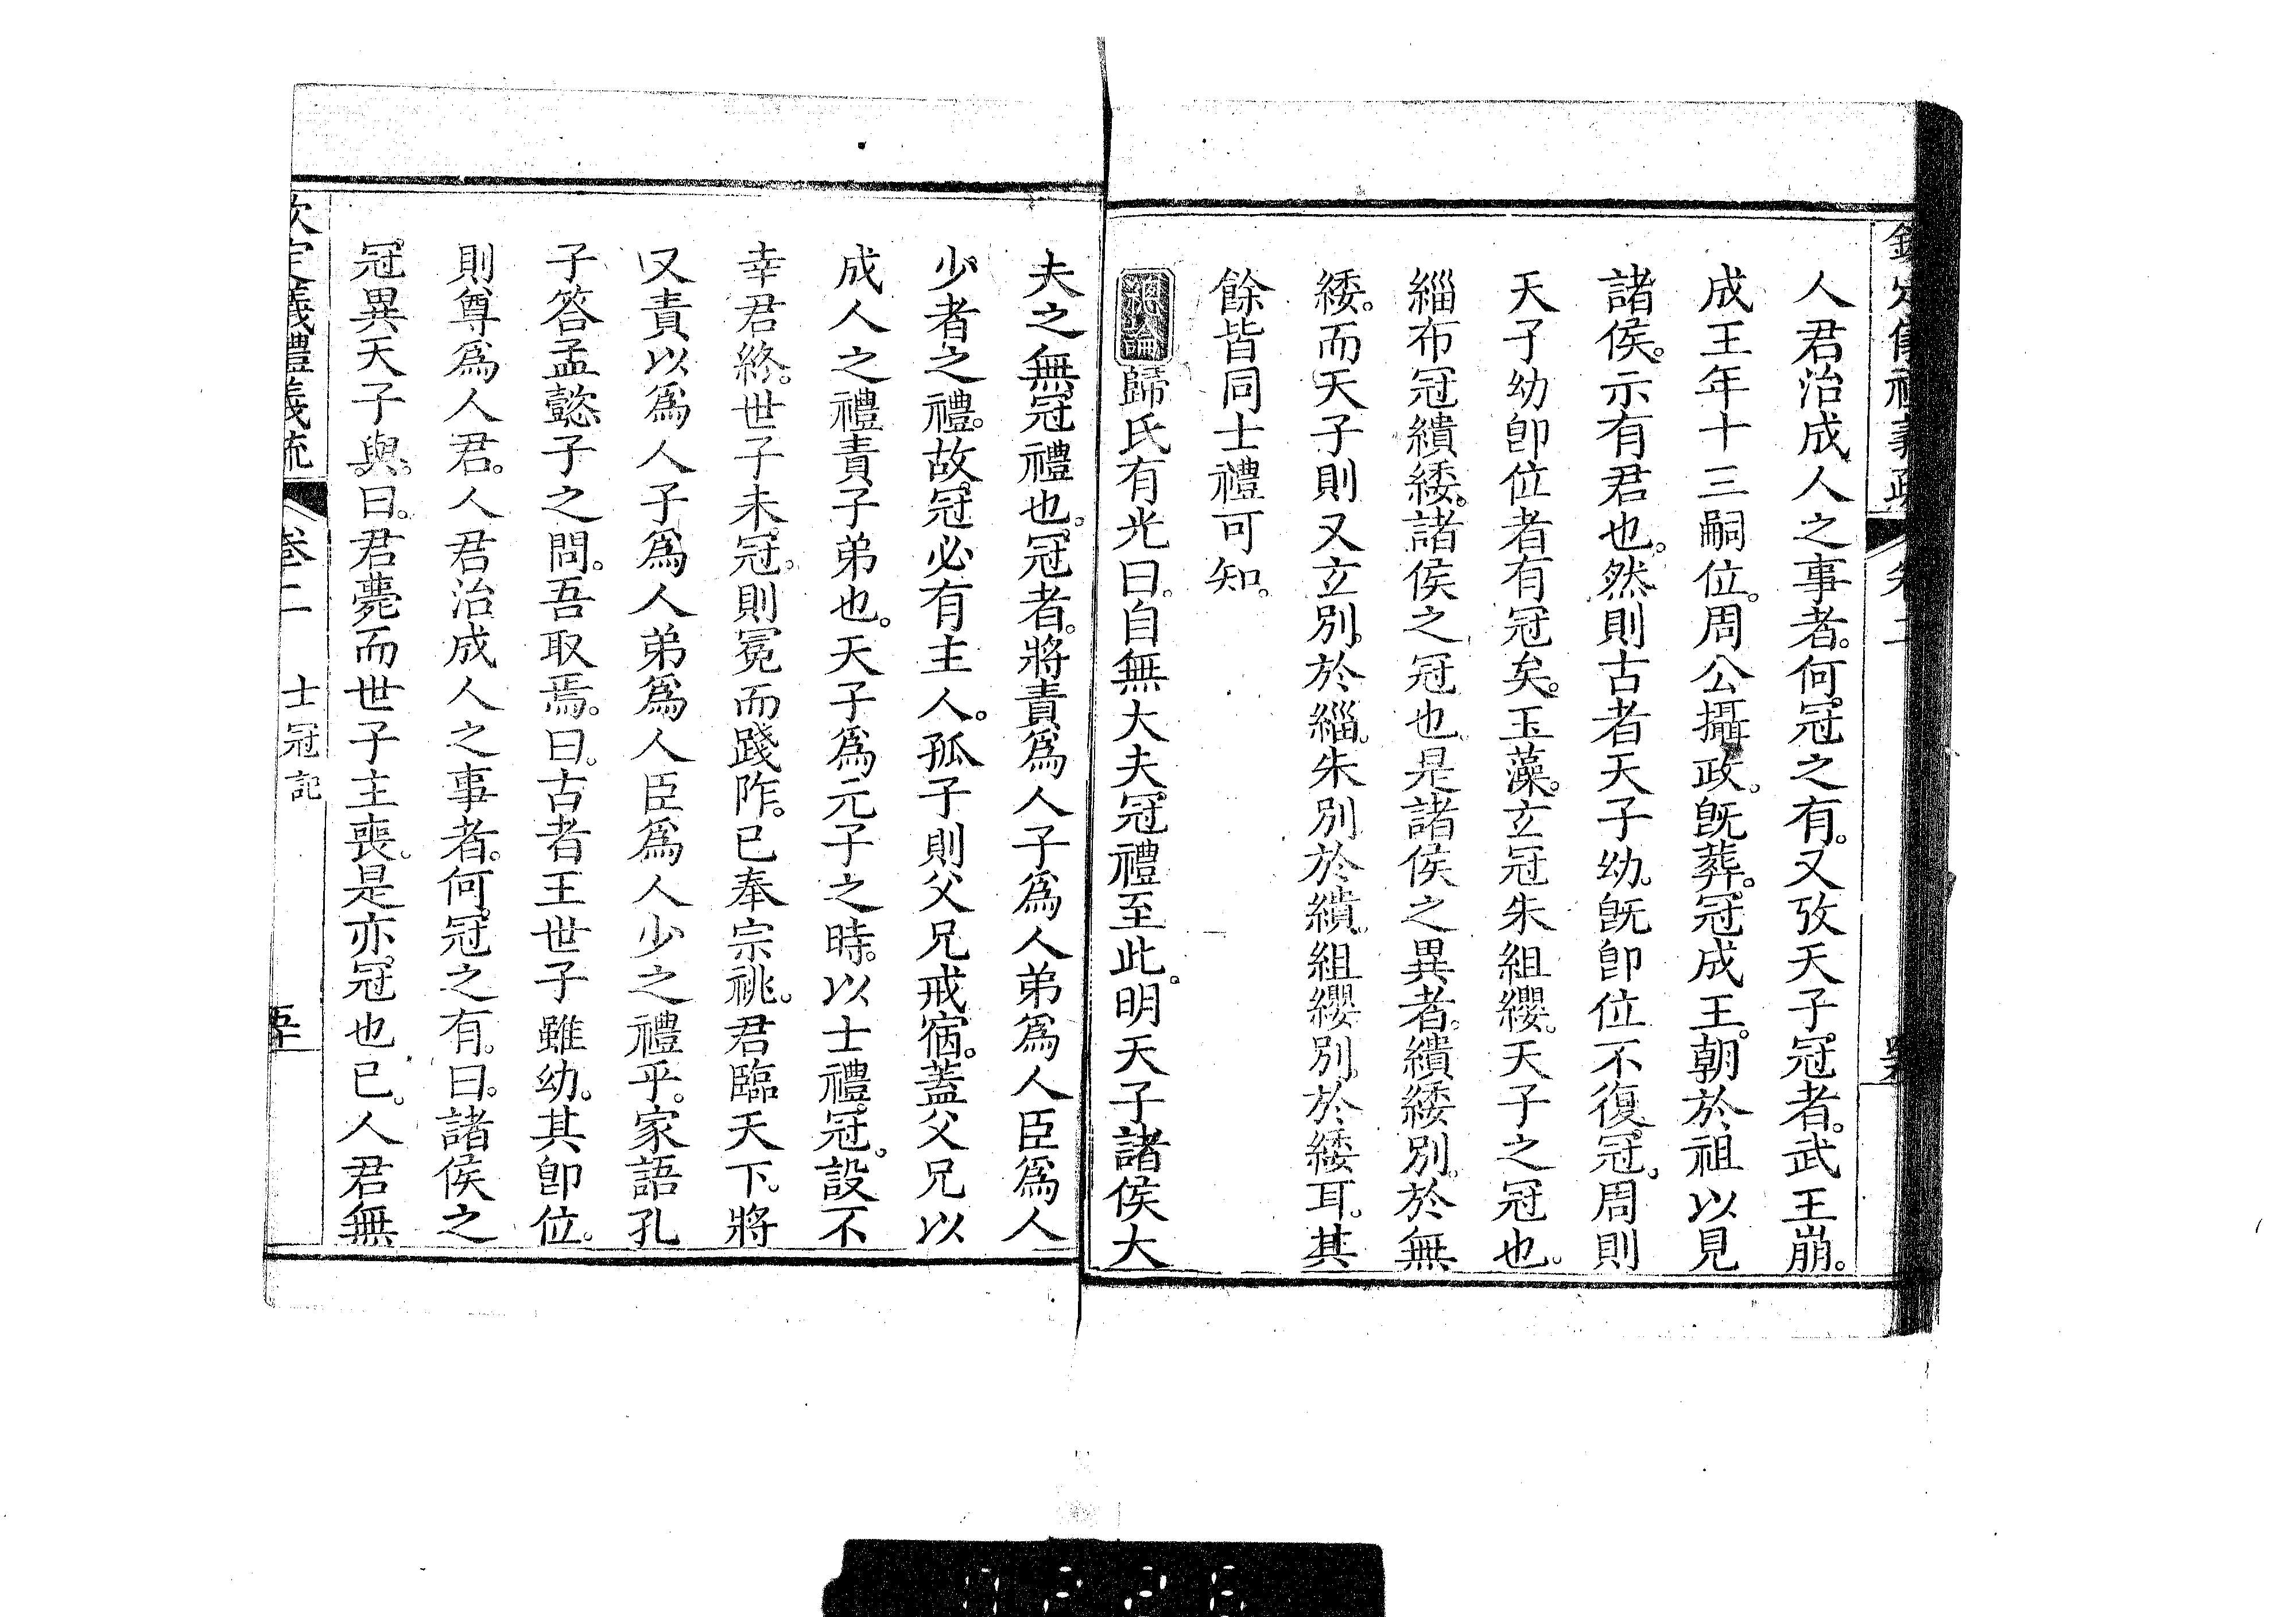 人君治成人之事者。何冠之有。又攷天子冠者。武王崩。
成王年十三嗣位。周公攝政。旣葬。冠成王。朝於祖以見
諸侯。示有君也。然則古者天子幼。旣卽位不復冠。周則
天子幼卽位者有冠矣。玉藻。玄冠朱組纓。天子之冠也。
緇布冠繢緌。諸侯之冠也。是諸侯之異者。繢緌別。於無
緌。而天子則又玄別。於緇。朱別於繢。組纓別。於緌耳。其
餘皆同士禮可知。
總論歸氏有光曰。自無大夫冠禮至此。明天子諸侯大
夫之無冠禮也。冠者。將責爲人子爲人弟爲人臣爲人
少者之禮。故冠必有主人。孤子則父兄戒宿。蓋父兄以
成人之禮責子弟也。天子爲元子之時。以士禮冠。設不
幸君終。世子未冠。則冕而踐阼。已奉宗祧。君臨天下。將
又責以爲人子爲人弟爲人臣爲人少之禮乎。家語孔
子答孟懿子之問。吾取焉。曰。古者王世子雖幼。其卽位。
則尊爲人君。人君治成人之事者。何冠之有。曰。諸侯之
冠異天子與。曰。君薨而世子主喪。是亦冠也已。人君無
欽定儀禮義疏
卷二 士冠記